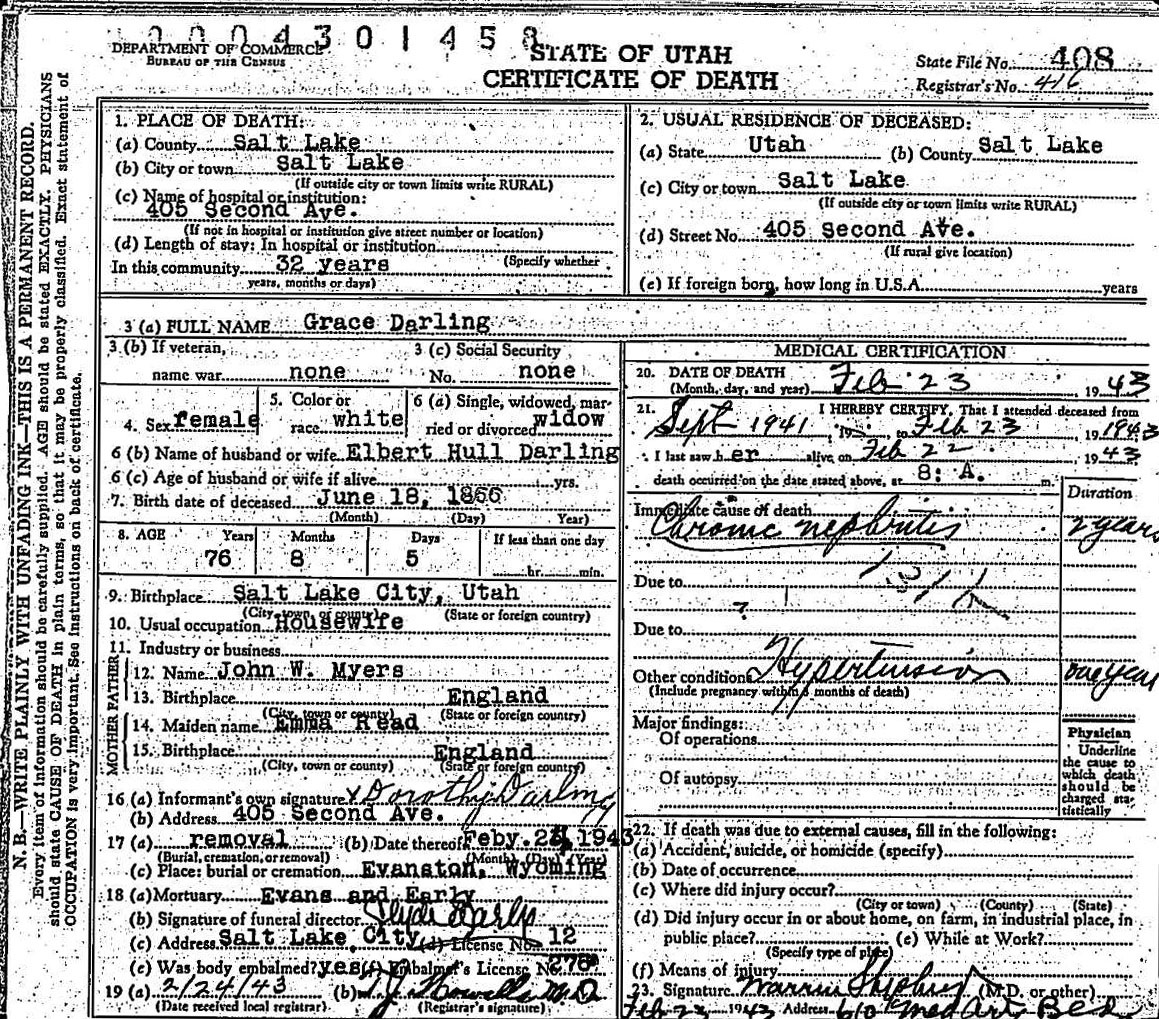 0004301458
DEPARTMENT OF COMMERCE
BUREAU OF THE CENSUS
STATE OF UTAH
CERTIFICATE OF DEATH
State File No. 408
Registrar's No. 416
N. B.—WRITE PLAINLY WITH UNFADING INK—THIS IS A PERMANENT RECORD.
Every item of information should be carefully supplied. AGE should be stated EXACTLY. PHYSICIANS
should state CAUSE OF DEATH in plain terms, so that it may be properly classified. Exact statement of
OCCUPATION is very important. See instructions on back of certificate.
1. PLACE OF DEATH:
(a) County Salt Lake
(b) City or town Salt Lake
(If outside city or town limits write RURAL)
(c) Name of hospital or institution:
405 Second Ave.
(If not in hospital or institution give street number or location)
(d) Length of stay: In hospital or institution
(Specify whether
In this community 32 years
years, months or days)
2. USUAL RESIDENCE OF DECEASED:
(a) State Utah (b) County Salt Lake
(c) City or town Salt Lake
(If outside city or town limits write RURAL)
(d) Street No. 405 Second Ave.
(If rural give location)
(e) If foreign born, how long in U.S.A. years
3 (a) FULL NAME Grace Darling
3 (b) If veteran, 3 (c) Social Security
name war none No. none
4. Sex female 5. Color or race white 6 (a) Single, widowed, married or divorced widow
6 (b) Name of husband or wife Elbert Hull Darling
6 (c) Age of husband or wife if alive yrs.
7. Birth date of deceased June 18, 1866
(Month) (Day) Year)
8. AGE Years Months Days If less than one day
76 8 5 hr. min.
9. Birthplace Salt Lake City, Utah
(City, town, or county) (State or foreign country)
10. Usual occupation Housewife
11. Industry or business
FATHER
12. Name John W. Myers
13. Birthplace England
(City, town or county) (State or foreign country)
MOTHER
14. Maiden name Emma Read
15. Birthplace England
(City, town or county) (State or foreign country)
16 (a) Informant's own signature x Dorothy Darling
(b) Address 405 Second Ave.
17 (a) removal (b) Date thereof Feby. 1943
(Burial, cremation, or removal) (Month) (Day) (Year)
(c) Place: burial or cremation Evanston, Wyoming
18 (a) Mortuary Evans and Early
(b) Signature of funeral director Clyde Early
(c) Address Salt Lake City (d) License No. 12
(e) Was body embalmed? yes (f) Embalmer's License No. 276
19 (a) 2/24/43 (b) T J Howells M.D.
(Date received local registrar) (Registrar's signature)
MEDICAL CERTIFICATION
20. DATE OF DEATH
(Month, day, and year) Feb 23, 1943
21. I HEREBY CERTIFY, That I attended deceased from
Sept 1941, 19 to Feb 23, 19 1943
I last saw her alive on Feb 22, 1943
death occurred on the date stated above, at 8: A. m.
Duration
Immediate cause of death
Chronic nephritis 2 years
Due to
Due to
Other conditions Hypertension one year
(Include pregnancy within 3 months of death)
Major findings:
Of operations
Of autopsy
Physician
Underline
the cause to
which death
should be
charged sta-
tistically
22. If death was due to external causes, fill in the following:
(a) Accident, suicide, or homicide (specify)
(b) Date of occurrence
(c) Where did injury occur?
(City or town) (County) (State)
(d) Did injury occur in or about home, on farm, in industrial place, in
public place? (e) While at Work?
(Specify type of place)
(f) Means of injury
23. Signature (M.D. or other)
Feb 23 1943 Address 610 Med Art Bld.